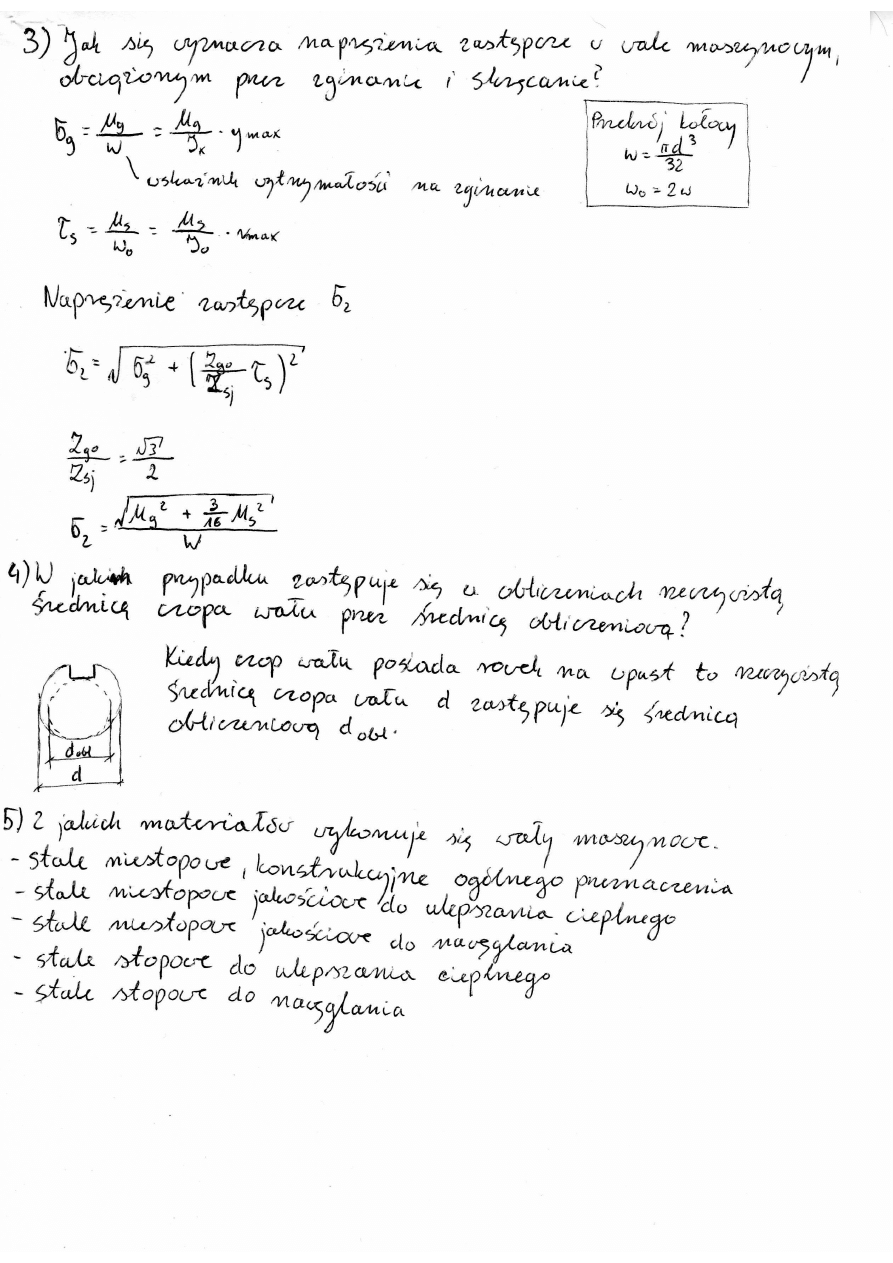 3) Jak się wyznacza naprężenia zastępcze w wale maszynowym,
obciążonym przez zginanie i skręcanie?
σg = Mg/W = Mg/Jx · ymax
wskaźnik wytrzymałości na zginanie
Przekrój kołowy
W = πd³/32
W₀ = 2W
τs = Ms/W₀ = Ms/J₀ · rmax
Naprężenie zastępcze σz
σz = √(σg² + (Zgo/Zsj τs)²)
Zgo/Zsj = √3/2
σz = √(Mg² + 3/16 Ms²)/W
4) W jakich przypadku zastępuje się w obliczeniach rzeczywistą
średnicę czopa wału przez średnicę obliczeniową?
Kiedy czop wału posiada rowek na wpust to rzeczywistą
średnicę czopa wału d zastępuje się średnicą
obliczeniową dobl.
dobl
d
5) Z jakich materiałów wykonuje się wały maszynowe.
- stale niestopowe, konstrukcyjne ogólnego przeznaczenia
- stale niestopowe jakościowe do ulepszania cieplnego
- stale niestopowe jakościowe do nawęglania
- stale stopowe do ulepszania cieplnego
- stale stopowe do nawęglania